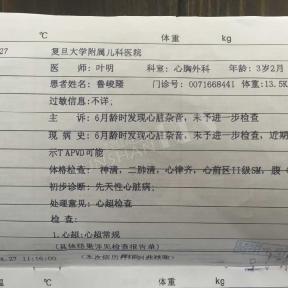 ℃ 体重 kg
27 复旦大学附属儿科医院
医 师：叶明 科室：心胸外科 年龄：3岁2月
患者姓名：鲁峻隆 门诊号：0071668441 体重:13.5K
过敏信息:不详;
主 诉：6月龄时发现心脏杂音，未予进一步检查
现 病 史：6月龄时发现心脏杂音，未予进一步检查，近期
示TAPVD可能
体格检查： 神清，二肺清，心律齐，心前区II级SM，腹
初步诊断：先天性心脏病;
处理意见：心超检查
检 查：
1.心超:心超常规
(具体结果详见检查报告单)
.27 11:16:00
℃ 体重 kg